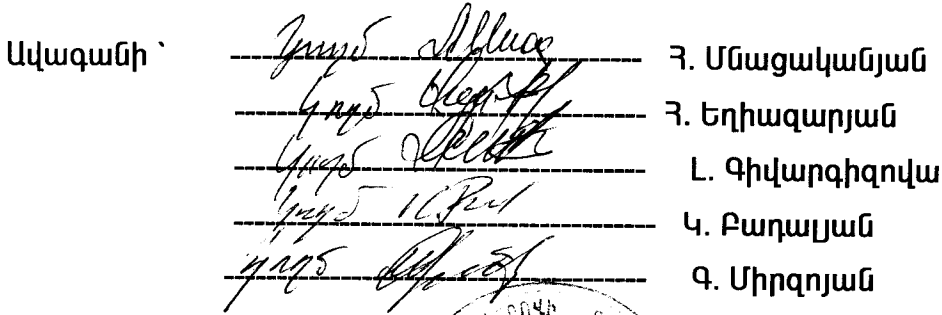 Ավագանի ՝ կողմ Հ. Մնացականյան
կողմ Հ. Եղիազարյան
կողմ Լ. Գիվարգիզովա
կողմ Կ. Բադալյան
կողմ Գ. Միրզոյան